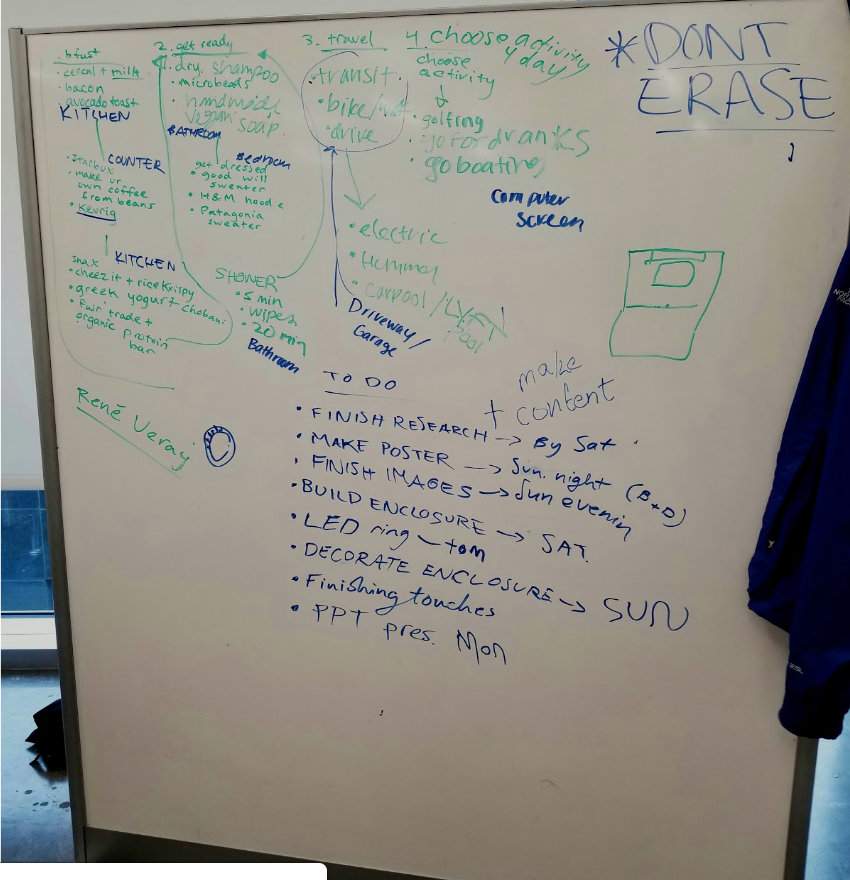 . bfust
• cereal + milk
• bacon
• avocado toast
KITCHEN
COUNTER
• Starbux
• make ur
own coffee
from beans
• Keurig
KITCHEN
snax
• cheez it + rice Krispy
• greek yogurt + chobani
• fair trade +
organic protein
bar
2. get ready
• dry. shampoo
• microbeads
• handmade
vegan soap.
BATHROOM
Bedroom
get dressed
• good will
sweater
• H&M hoodie
• Patagonia
sweater
SHOWER
• 5 min
• wipes
• 20 min
Bathroom
3. travel
• transit
• bike/
• drive
• electric
• Hummer
• carpool / LYFT
pool
Driveway/
Garage
4. choose activity
4 day
choose
activity
• golfing
• go for dranks
• go boating
Computer
Screen
* DONT
ERASE
René Veray
TO DO
make
+ content
• FINISH RESEARCH → By Sat
• MAKE POSTER → Sun. night (B+D)
• FINISH IMAGES → Sun evenin
• BUILD ENCLOSURE → SAT.
• LED ring – tom
• DECORATE ENCLOSURE → SUN
• Finishing touches
• PPT pres. Mon